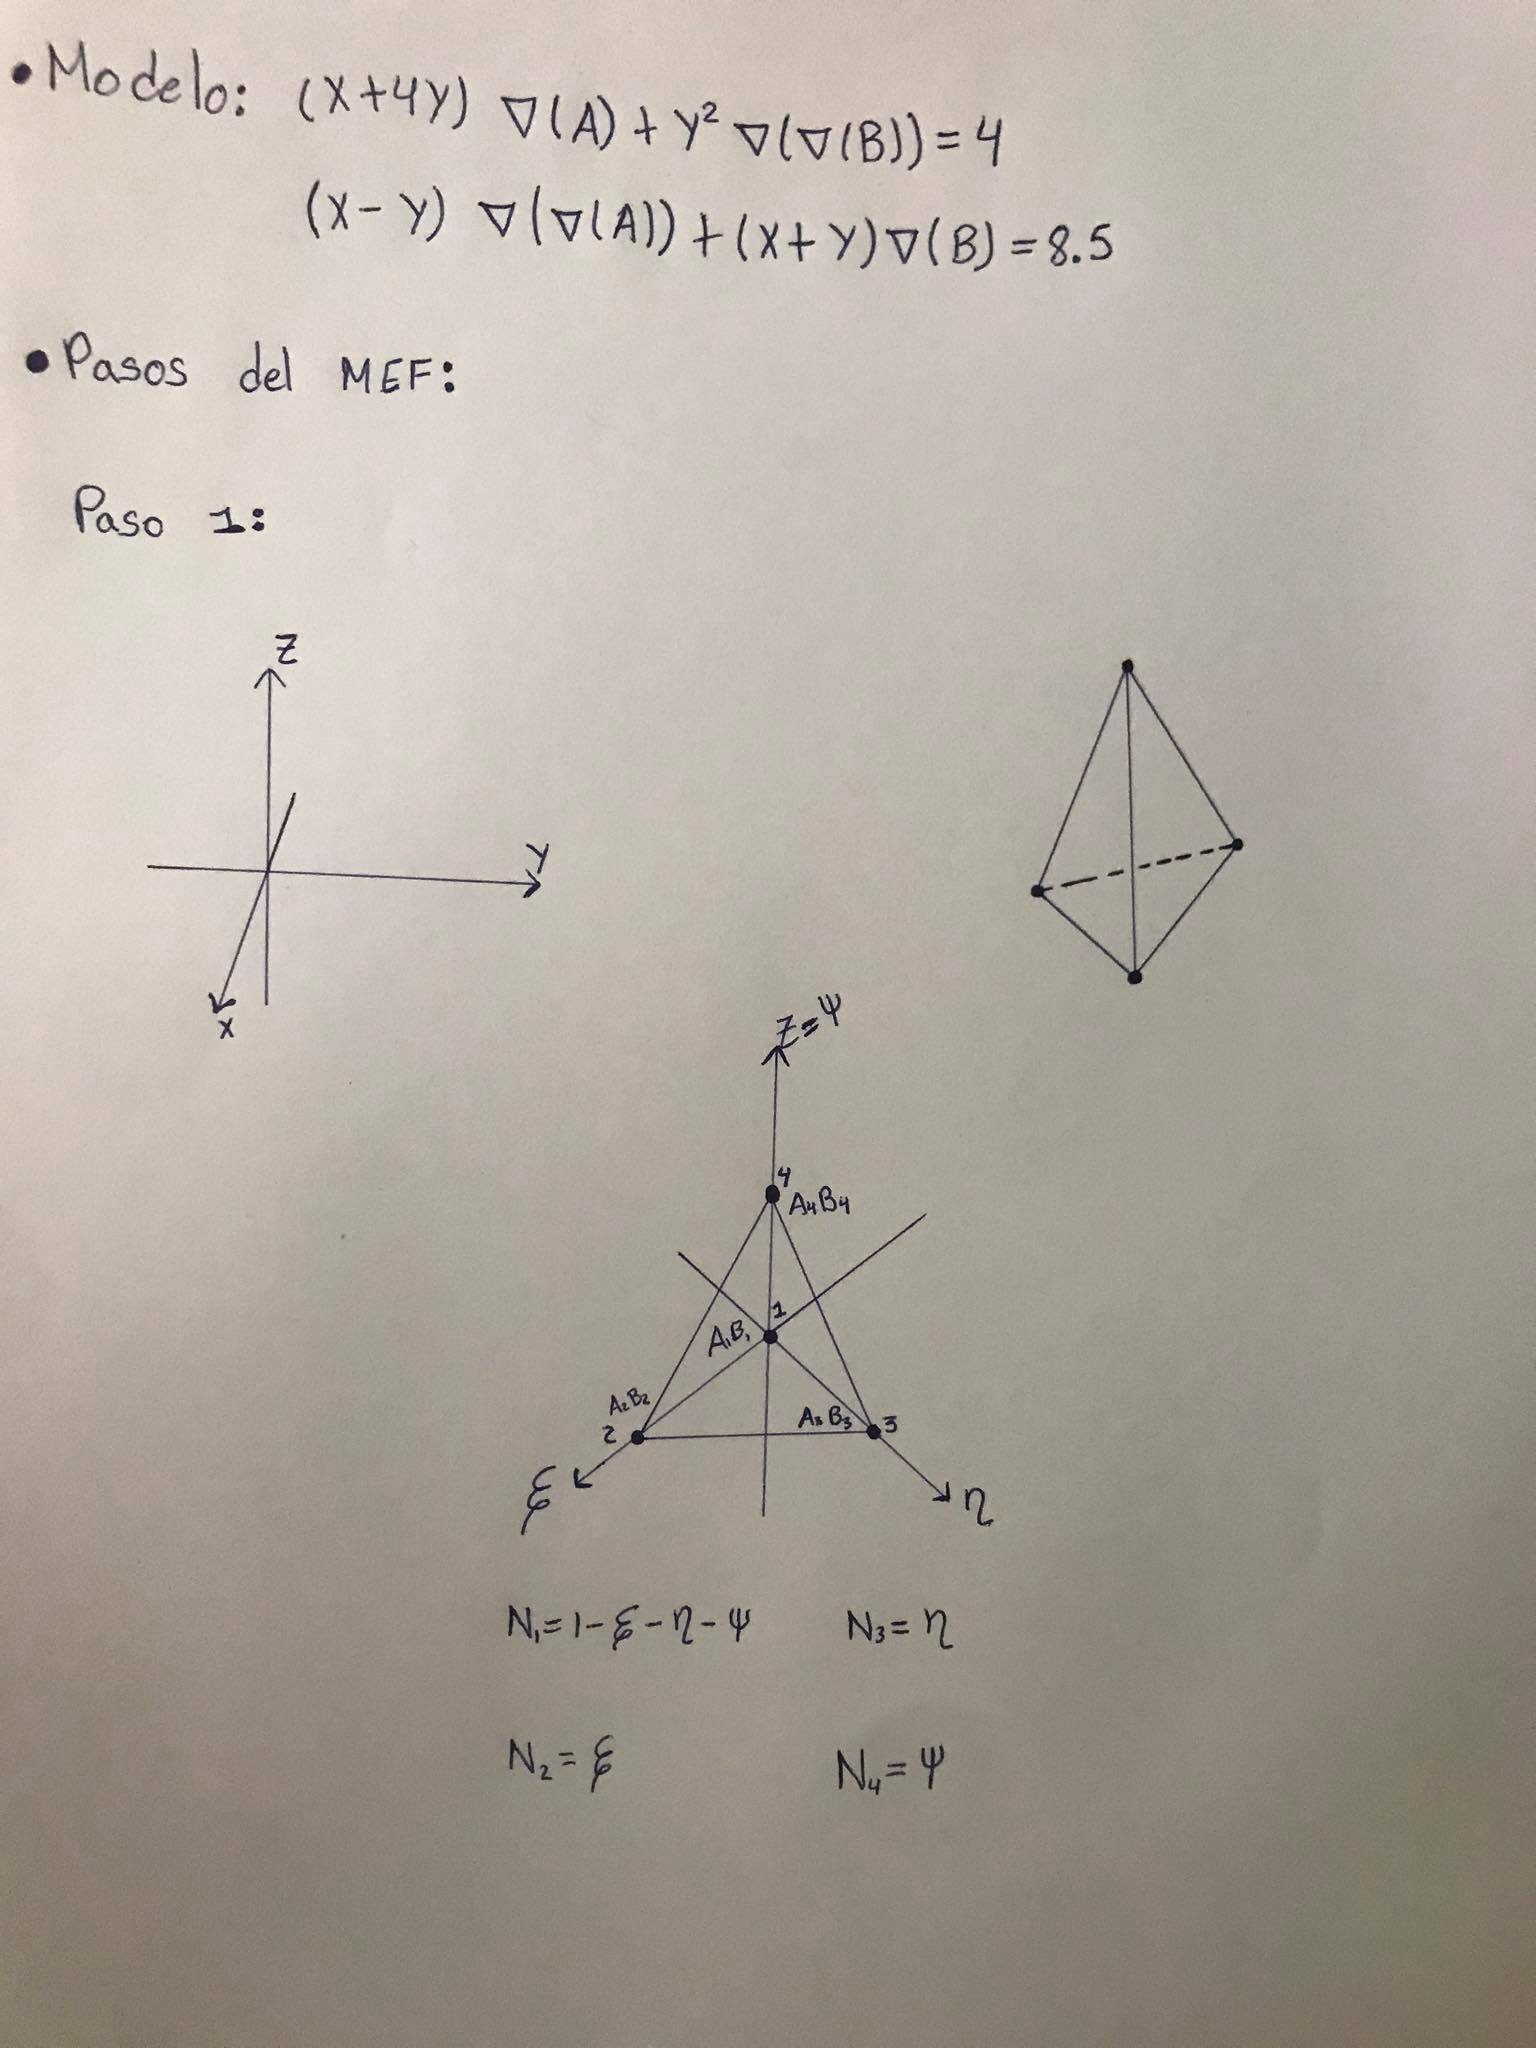 • Modelo: (X+4Y) ∇(A) + Y² ∇(∇(B)) = 4
(X-Y) ∇(∇(A)) + (X+Y)∇(B) = 8.5
• Pasos del MEF:
Paso 1:
Z
Y
X
Z=Ψ
4
A₄B₄
1
A₁B₁
A₂B₂
2
A₃B₃ 3
ξ
η
N₁=1-ξ-η-Ψ N₃=η
N₂=ξ N₄=Ψ